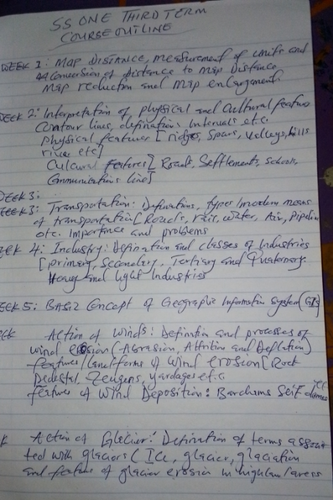 SS ONE THIRD TERM
COURSE OUTLINE
WEEK 1: Map Distance, measurement of units and
Conversion of distance to map Distance
Map reduction and map enlargement
WEEK 2: Interpretation of physical and Cultural features
Contour lines, definition, Intervals etc.
physical features [ridges, Spurs, Valleys, hills
river etc]
Cultural features [Roads, Settlements, schools,
Communication lines]
WEEK 3:
WEEK 3: Transportation: Definition, types/modern means
of transportation (Roads, rail, water, Air, Pipeline
etc. Importance and problems
WEEK 4: Industry: Definition and classes of Industries
[primary, Secondary, Tertiary and Quaternary.
Heavy and light Industries
WEEK 5: Basic Concept of Geographic Information System (GIS)
Action of winds: Definition and processes of
wind erosion (Abrasion, Attrition and Deflation)
features/landforms of wind erosion [Rock
Pedestal, Zeugens, Yardangs e.t.c
features of wind Deposition: Barchans Seif dunes
Action of Glacier: Definition of terms associa
ted with glaciers (Ice, glacier, glaciation
and features of glacier erosion in highland areas